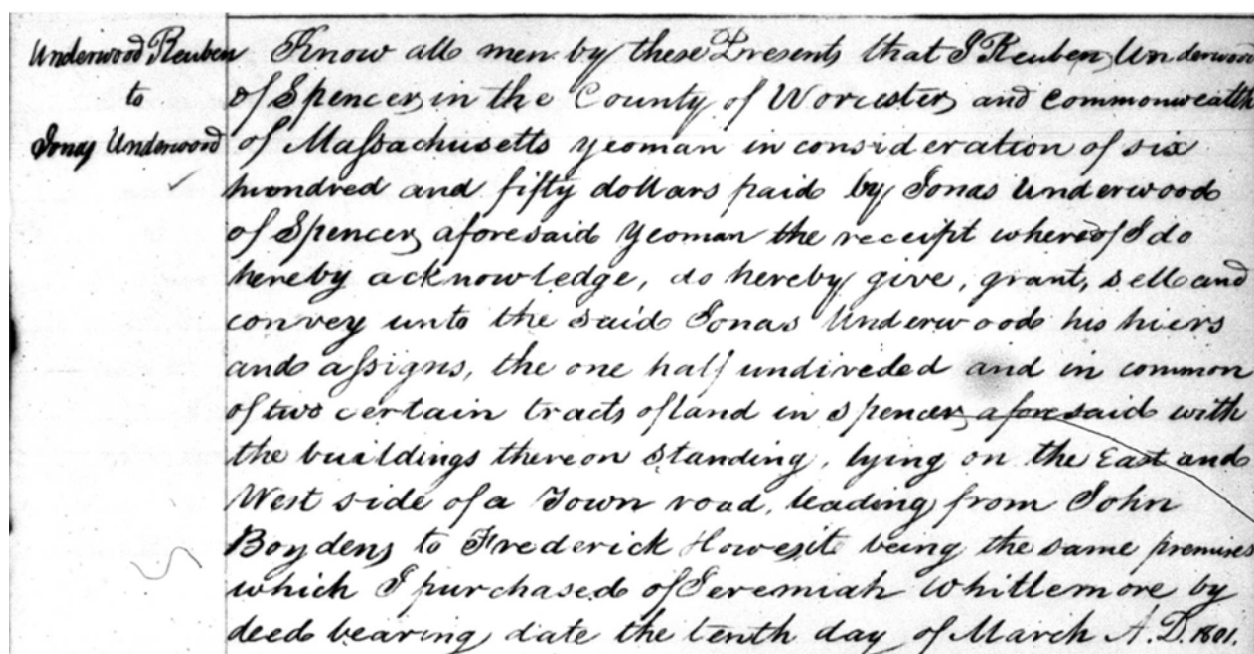 Underwood Reuben
to
Jonas Underwood
Know all men by these Presents that I Reuben Underwood
of Spencer, in the County of Worcester, and Commonwealth
of Massachusetts yeoman in consideration of six
hundred and fifty dollars paid by Jonas Underwood
of Spencer, aforesaid yeoman the receipt whereof I do
hereby acknowledge, do hereby give, grant, sell and
convey unto the said Jonas Underwood his hiers
and assigns, the one half undivided and in common
of two certain tracts of land in Spencer, aforesaid with
the buildings thereon standing, lying on the East and
West side of a Town road, leading from John
Boydens to Frederick Howes it being the same premises
which I purchased of Jeremiah Whittemore by
deed bearing date the tenth day of March A.D. 1801.